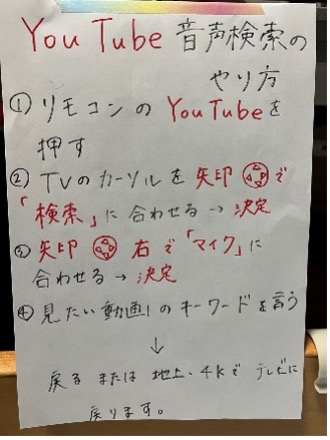 YouTube 音声検索の
やり方
① リモコンの YouTubeを
押す
② TVのカーソルを 矢印 で
「検索」に合わせる → 決定
③ 矢印 右で「マイク」に
合わせる → 決定
④ 見たい動画のキーワードを言う
↓
戻る または 地上・4Kで テレビに
戻ります。